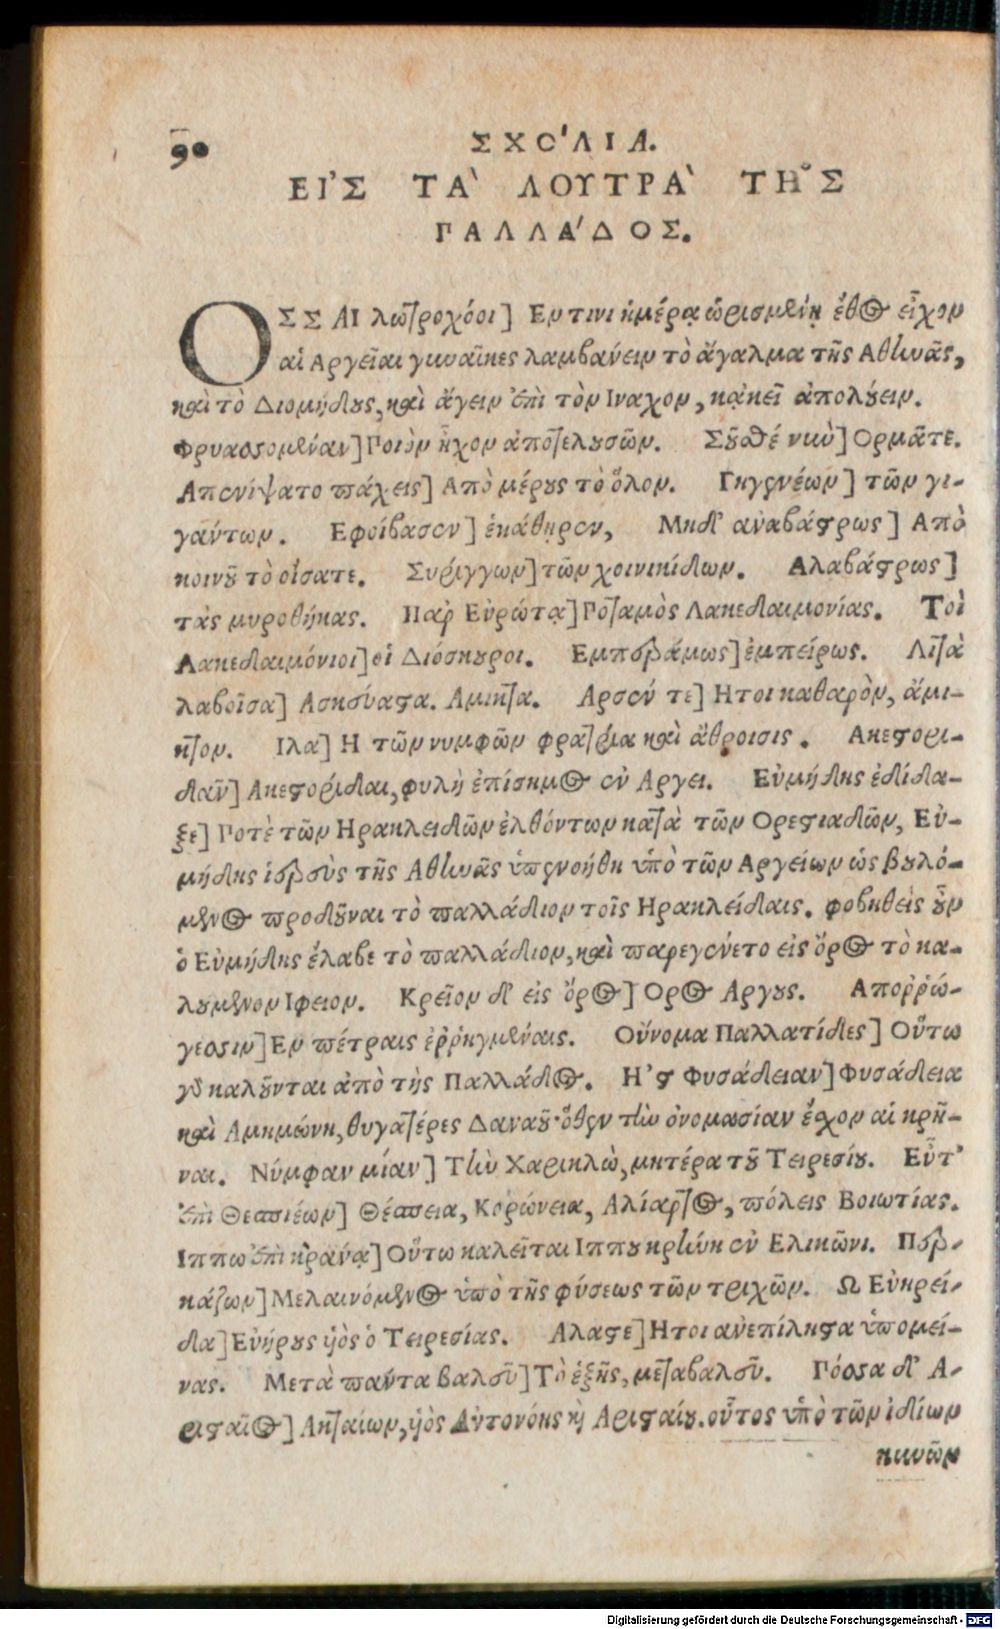 90
ΣΧΟ'ΛΙΑ.
ΕΙ'Σ ΤΑ` ΛΟΥΤΡΑ` ΤΗ͂Σ
ΠΑΛΛΑ'ΔΟΣ.
ΟΣΣΑΙ λωτροχόοι] Εν τινι ἡμέρᾳ ὡρισμένῃ ἔθος εἶχον
αἱ Αργεῖαι γυναῖκες λαμβάνειν τὸ ἄγαλμα τῆς Αθηνᾶς,
καὶ τὸ Διομήδους, καὶ ἄγειν ἐπὶ τὸν Ιναχον, κᾀκεῖ ἀπολούειν.
Φρυασσομενάν] Ποιὸν ἦχον ἀποτελουσῶν. Σοῦσθέ νυν] Ορμᾶτε.
Απενίψατο πάχεις] Απὸ μέρους τὸ ὅλον. Γηγενέων] τῶν γι-
γάντων. Εφοίβασεν] ἐκάθηρεν, Μηδ' ἀναβάστρως] Απὸ
κοινοῦ τὸ οἴσατε. Συρίγγων] τῶν χοινικίδων. Αλαβάστρως]
τὰς μυροθήκας. Παρ Εὐρώτᾳ] Ποταμὸς Λακεδαιμονίας. Τοὶ
Λακεδαιμόνιοι] οἱ Διόσκουροι. Εμπεράμως] ἐμπείρως. Λιτὰ
λαβοῖσα] Ασκεύαστα. Αμικτα. Αρσεν τε] Ητοι καθαρὸν, ἄμι-
κτον. Ιλα] Η τῶν νυμφῶν φρατρία καὶ ἄθροισις. Ακεστορι-
δᾶν] Ακεστορίδαι, φυλὴ ἐπίσημος ἐν Αργει. Εὐμήδης ἐδίδα-
ξε] Ποτὲ τῶν Ηρακλειδῶν ἐλθόντων κατὰ τῶν Ορεστιαδῶν, Εὐ-
μήδης ἱερεὺς τῆς Αθηνᾶς ὑπενοήθη ὑπὸ τῶν Αργείων ὡς βουλό-
μενος προδοῦναι τὸ παλλάδιον τοῖς Ηρακλείδαις. φοβηθεὶς οὖν
ὁ Εὐμήδης ἔλαβε τὸ παλλάδιον, καὶ παρεγένετο εἰς ὄρος τὸ κα-
λούμενον Ιφειον. Κρεῖον δ' εἰς ὄρος] Ορος Αργους. Απορρώ-
γεσσιν] Εν πέτραις ἐῤῥηγμέναις. Οὔνομα Παλλατίδες] Οὕτω
γδ καλοῦνται ἀπὸ τῆς Παλλάδος. Η' ς Φυσάδειαν] Φυσάδεια
καὶ Αμημώνη, θυγατέρες Δαναοῦ· ὅθεν τὴν ὀνομασίαν ἔσχον αἱ κρῆ-
ναι. Νύμφαν μίαν] Τὴν Χαρικλὼ, μητέρα τοῦ Τειρεσίου. Εὖτ'
ἐπὶ Θεσπιέων] Θέσπεια, Κορώνεια, Αλίαρτος, πόλεις Βοιωτίας.
Ιππω ἐπὶ κράνᾳ] Οὕτω καλεῖται Ιππου κρήνη ἐν Ελικῶνι. Περ-
κάζων] Μελαινόμενος ὑπὸ τῆς φύσεως τῶν τριχῶν. Ω Εὐηρεί-
δα] Εὐήρους ὑὸς ὁ Τειρεσίας. Αλαστε] Ητοι ἀνεπίληστα ὑπομεί-
νας. Μετὰ πάντα βαλοῦ] Τὸ ἑξῆς, μεταβαλοῦ. Πόσσα δ' Α-
ρισταῖος] Ακταίων, ὑὸς Αὐτονόης κὶ Αρισταίου. οὗτος ὑπὸ τῶν ἰδίων
κυνῶν
Digitalisierung gefördert durch die Deutsche Forschungsgemeinschaft - DFG